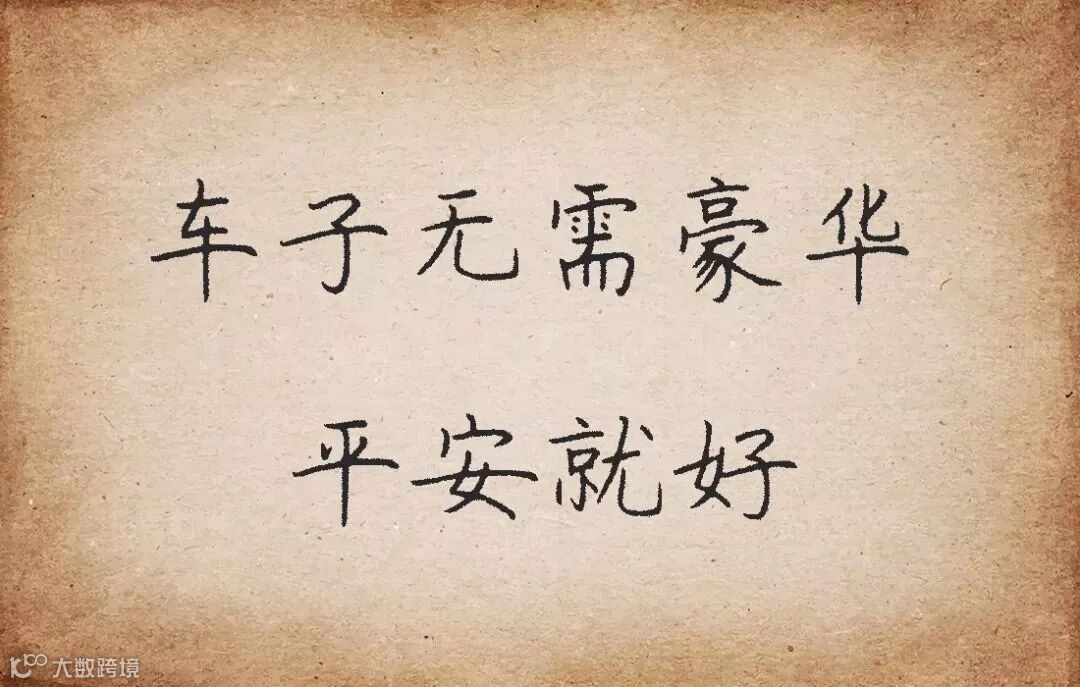 车子无需豪华
平安就好
大数跨境